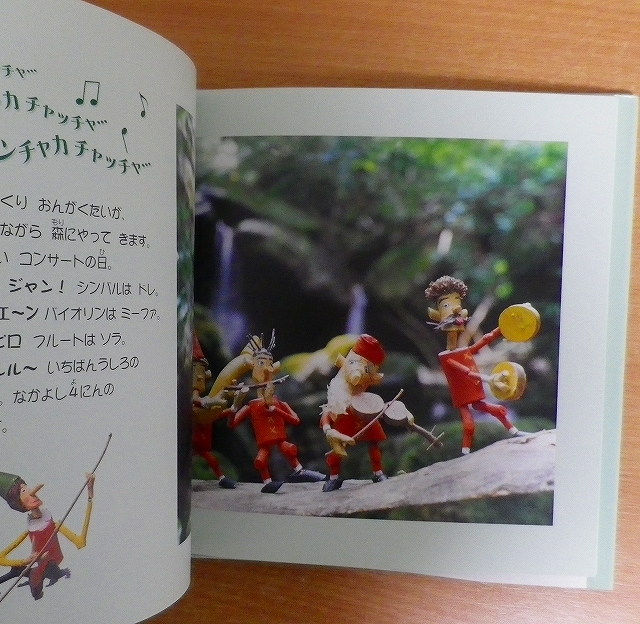 チャ…
カ チャッチャ…
ンチャカ チャッチャ…
くり おんがくたいが、
ながら 森にやって きます。
もり
い コンサートの日。
ひ
ジャン! シンバルは トレ。
エ〜ン バイオリンは ミーファ。
ピロ フルートは ソラ。
ルル〜 いちばんうしろの
。 なかよし4にんの
よ
。